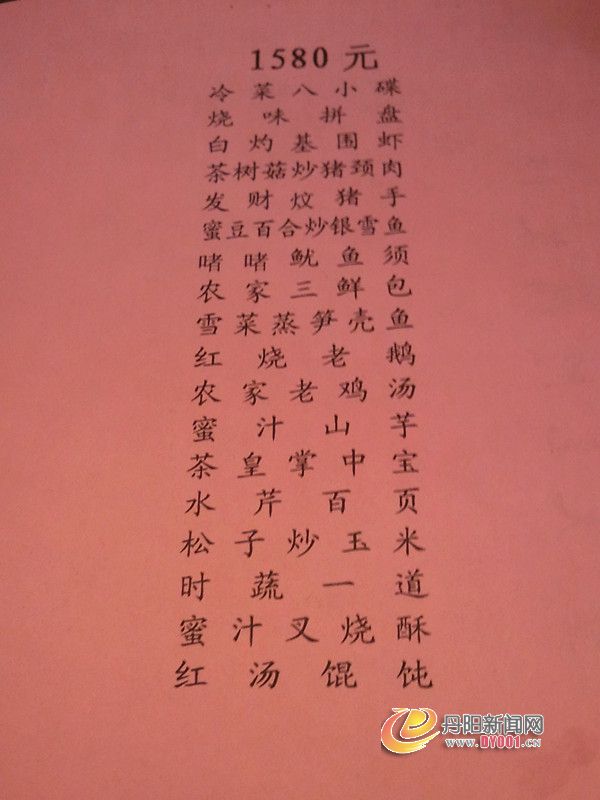 1580 元
冷菜八小碟
烧味拼盘
白灼基围虾
茶树菇炒猪颈肉
发财炆猪手
蜜豆百合炒银雪鱼
啫啫鱿鱼须
农家三鲜包
雪菜蒸笋壳鱼
红烧老鹅
农家老鸡汤
蜜汁山芋
茶皇掌中宝
水芹百页
松子炒玉米
时蔬一道
蜜汁叉烧酥
红汤馄饨
丹阳新闻网
www.DY001.cn